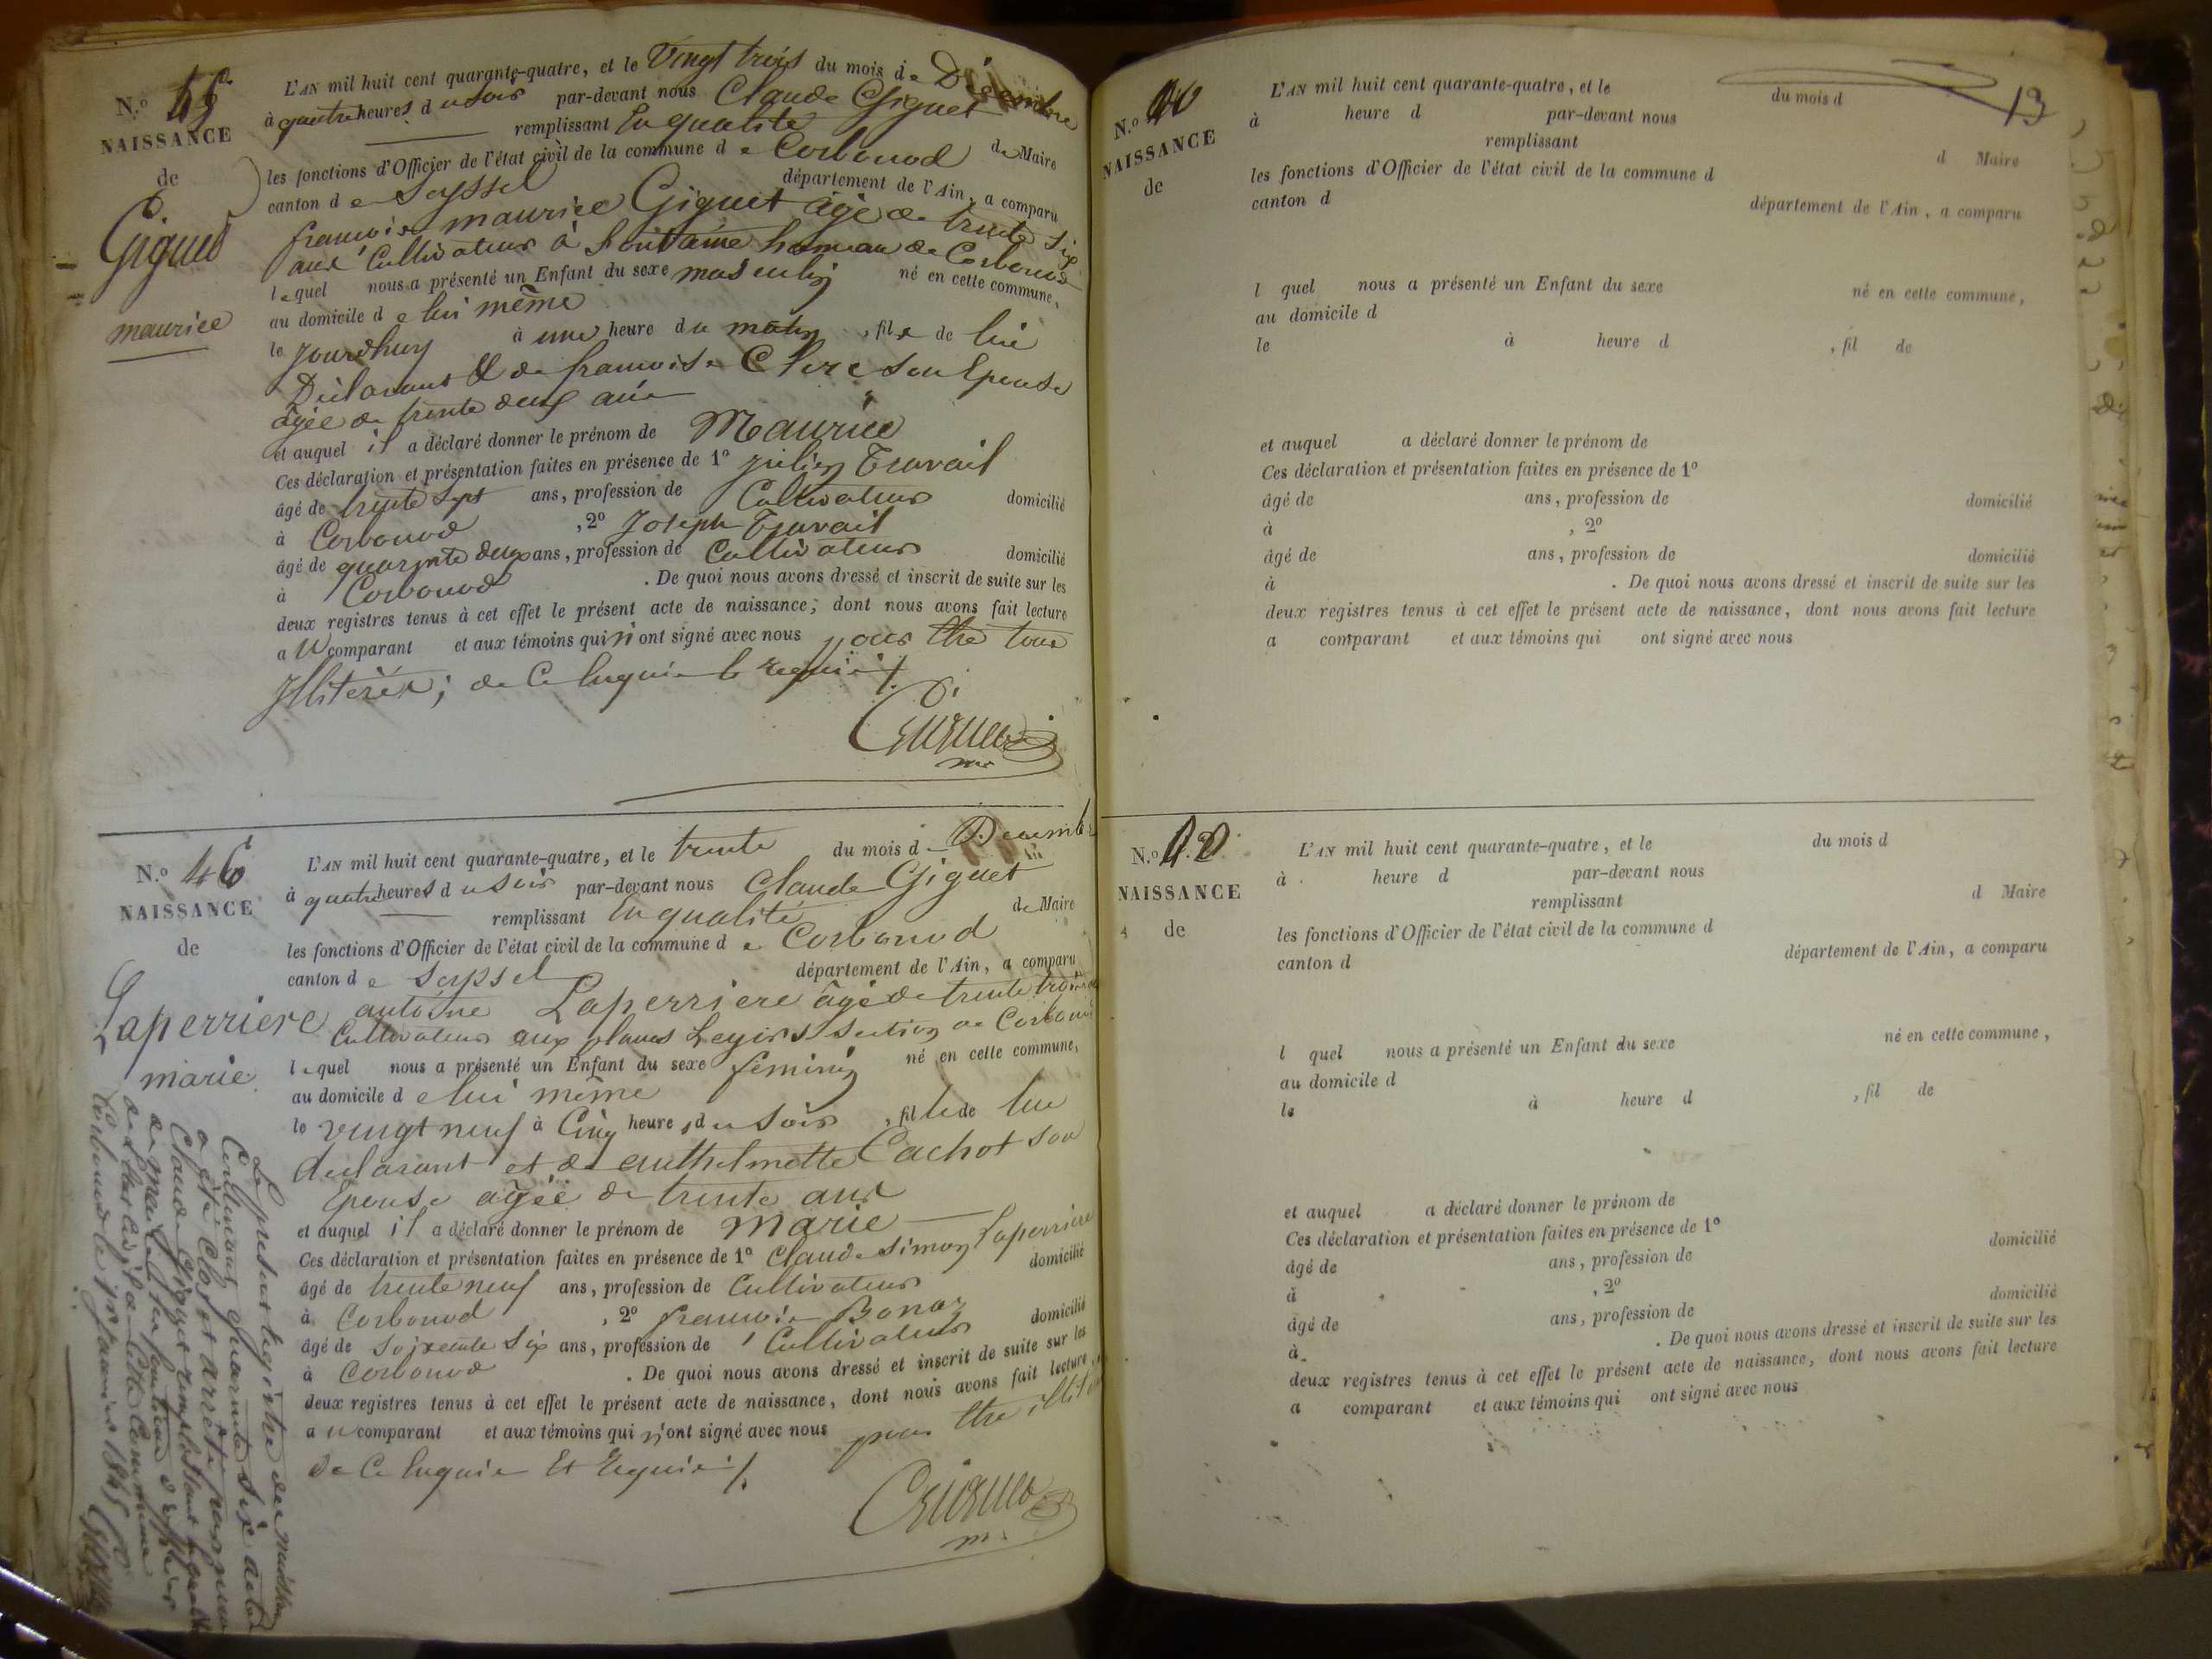 N.º 45
NAISSANCE
de
Giguet
maurice
L'AN mil huit cent quarante-quatre, et le Vingt trois du mois de Décembre
à quatre heures du soir par-devant nous Claude Giguet
remplissant En qualité de Maire
les fonctions d'Officier de l'état civil de la commune de Corbonod
canton de Seyssel département de l'Ain, a comparu
francois maurice Giguet âgé de trente six
ans Cultivateur à fontaine hameau de Corbonod
lequel nous a présenté un Enfant du sexe masculin né en cette commune,
au domicile de lui même
le jourdhuy à une heure du matin, fils de lui
Déclarant & de francoise Clerc son Epouse
âgée de trente deux ans
et auquel il a déclaré donner le prénom de Maurice
Ces déclaration et présentation faites en présence de 1º julien Travail
âgé de trente sept ans, profession de Cultivateur domicilié
à Corbonod, 2º Joseph Travail
âgé de quarante deux ans, profession de Cultivateur domicilié
à Corbonod. De quoi nous avons dressé et inscrit de suite sur les
deux registres tenus à cet effet le présent acte de naissance, dont nous avons fait lecture
au comparant et aux témoins qui n'ont signé avec nous pour Etre tous
Illiterés; de ce Enquis et requis
Giguet
N.º 46
NAISSANCE
de
Laperriere
marie
L'AN mil huit cent quarante-quatre, et le trente du mois de Décembre
à quatre heures du soir par-devant nous Claude Giguet
remplissant En qualité de Maire
les fonctions d'Officier de l'état civil de la commune de Corbonod
canton de Seyssel département de l'Ain, a comparu
antoine Laperriere âgé de trente trois
Cultivateur aux section de Corbonod
lequel nous a présenté un Enfant du sexe féminin né en cette commune,
au domicile de lui même
le vingt neuf à Cinq heures du soir, fille de lui
declarant et de anthelmette Cachot son
Epouse agée de trente ans
et auquel il a déclaré donner le prénom de Marie
Ces déclaration et présentation faites en présence de 1º Claude Simon Laperriere
âgé de trente neuf ans, profession de Cultivateur domicilié
à Corbonod, 2º francois Bonaz
âgé de soixante six ans, profession de Cultivateur domicilié
à Corbonod. De quoi nous avons dressé et inscrit de suite sur les
deux registres tenus à cet effet le présent acte de naissance, dont nous avons fait lecture
au comparant et aux témoins qui n'ont signé avec nous pour Etre
de ce Enquis Et Requis
Giguet
Le present registre de naissance
Contenant quarante six actes
a été Clos et arrêté par nous
Claude Giguet remplissant En qualité
de maire les fonctions d'officier
de l'état civil de ladite Commune
de Corbonod le janvier 1845
Giguet
13
N.º
NAISSANCE
de
L'AN mil huit cent quarante-quatre, et le du mois d
à heure d par-devant nous
remplissant d Maire
les fonctions d'Officier de l'état civil de la commune d
canton d département de l'Ain, a comparu
l quel nous a présenté un Enfant du sexe né en cette commune,
au domicile d
le à heure d, fil de
et auquel a déclaré donner le prénom de
Ces déclaration et présentation faites en présence de 1º
âgé de ans, profession de domicilié
à, 2º
âgé de ans, profession de domicilié
à. De quoi nous avons dressé et inscrit de suite sur les
deux registres tenus à cet effet le présent acte de naissance, dont nous avons fait lecture
a comparant et aux témoins qui ont signé avec nous
N.º
NAISSANCE
de
L'AN mil huit cent quarante-quatre, et le du mois d
à heure d par-devant nous
remplissant d Maire
les fonctions d'Officier de l'état civil de la commune d
canton d département de l'Ain, a comparu
l quel nous a présenté un Enfant du sexe né en cette commune,
au domicile d
le à heure d, fil de
et auquel a déclaré donner le prénom de
Ces déclaration et présentation faites en présence de 1º
âgé de ans, profession de domicilié
à, 2º
âgé de ans, profession de domicilié
à. De quoi nous avons dressé et inscrit de suite sur les
deux registres tenus à cet effet le présent acte de naissance, dont nous avons fait lecture
a comparant et aux témoins qui ont signé avec nous